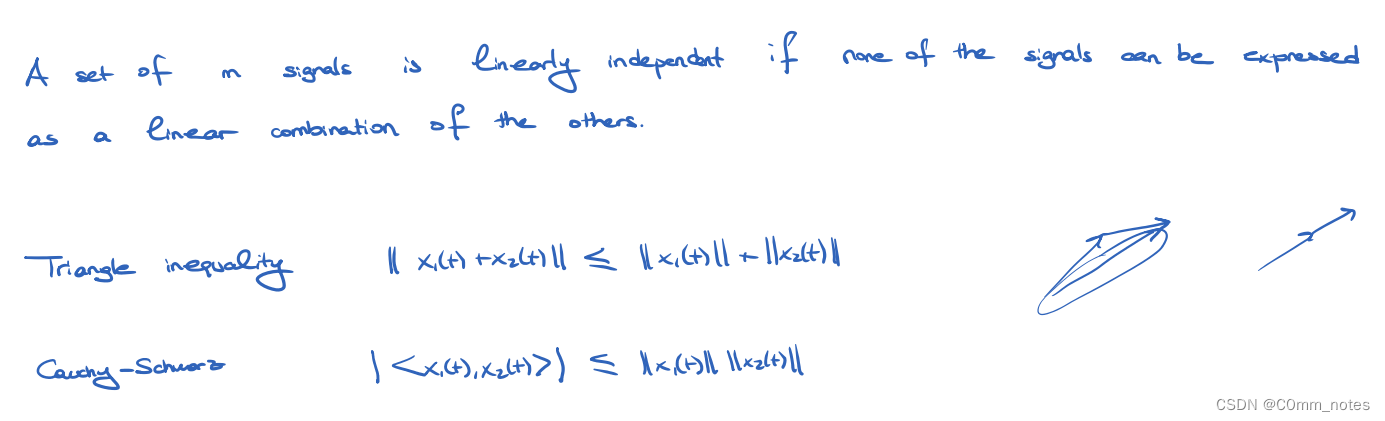 A set of m signals is linearly independent if none of the signals can be expressed
as a linear combination of the others.
Triangle inequality ‖ x₁(t) + x₂(t) ‖ ≤ ‖ x₁(t) ‖ + ‖ x₂(t) ‖
Cauchy-Schwarz | <x₁(t), x₂(t)> | ≤ ‖ x₁(t) ‖ ‖ x₂(t) ‖
CSDN @C0mm_notes